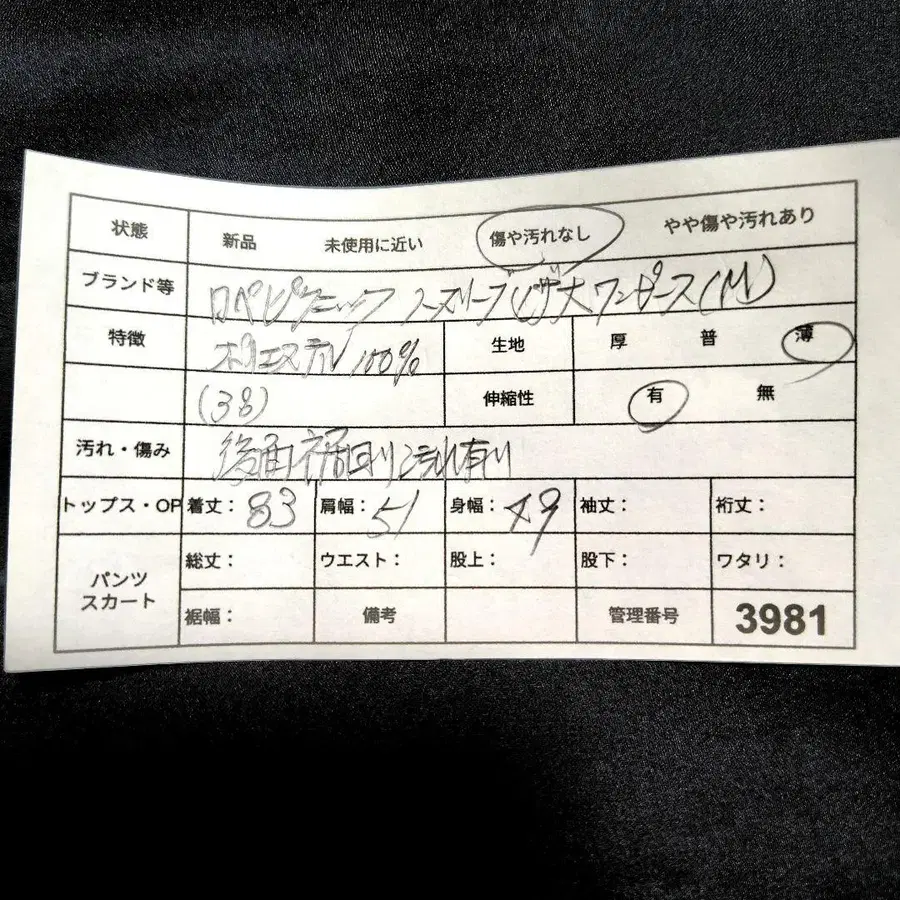 状態 新品 未使用に近い 傷や汚れなし やや傷や汚れあり
ブランド等 ロペピクニック ノースリーブ ワンピース(M)
特徴 ポリエステル100% 生地 厚 普 薄
(38) 伸縮性 有 無
汚れ・傷み 後面裾回り汚れ有り
トップス・OP 着丈: 83 肩幅: 51 身幅: 49 袖丈: 裄丈:
パンツ スカート 総丈: ウエスト: 股上: 股下: ワタリ:
裾幅: 備考 管理番号 3981